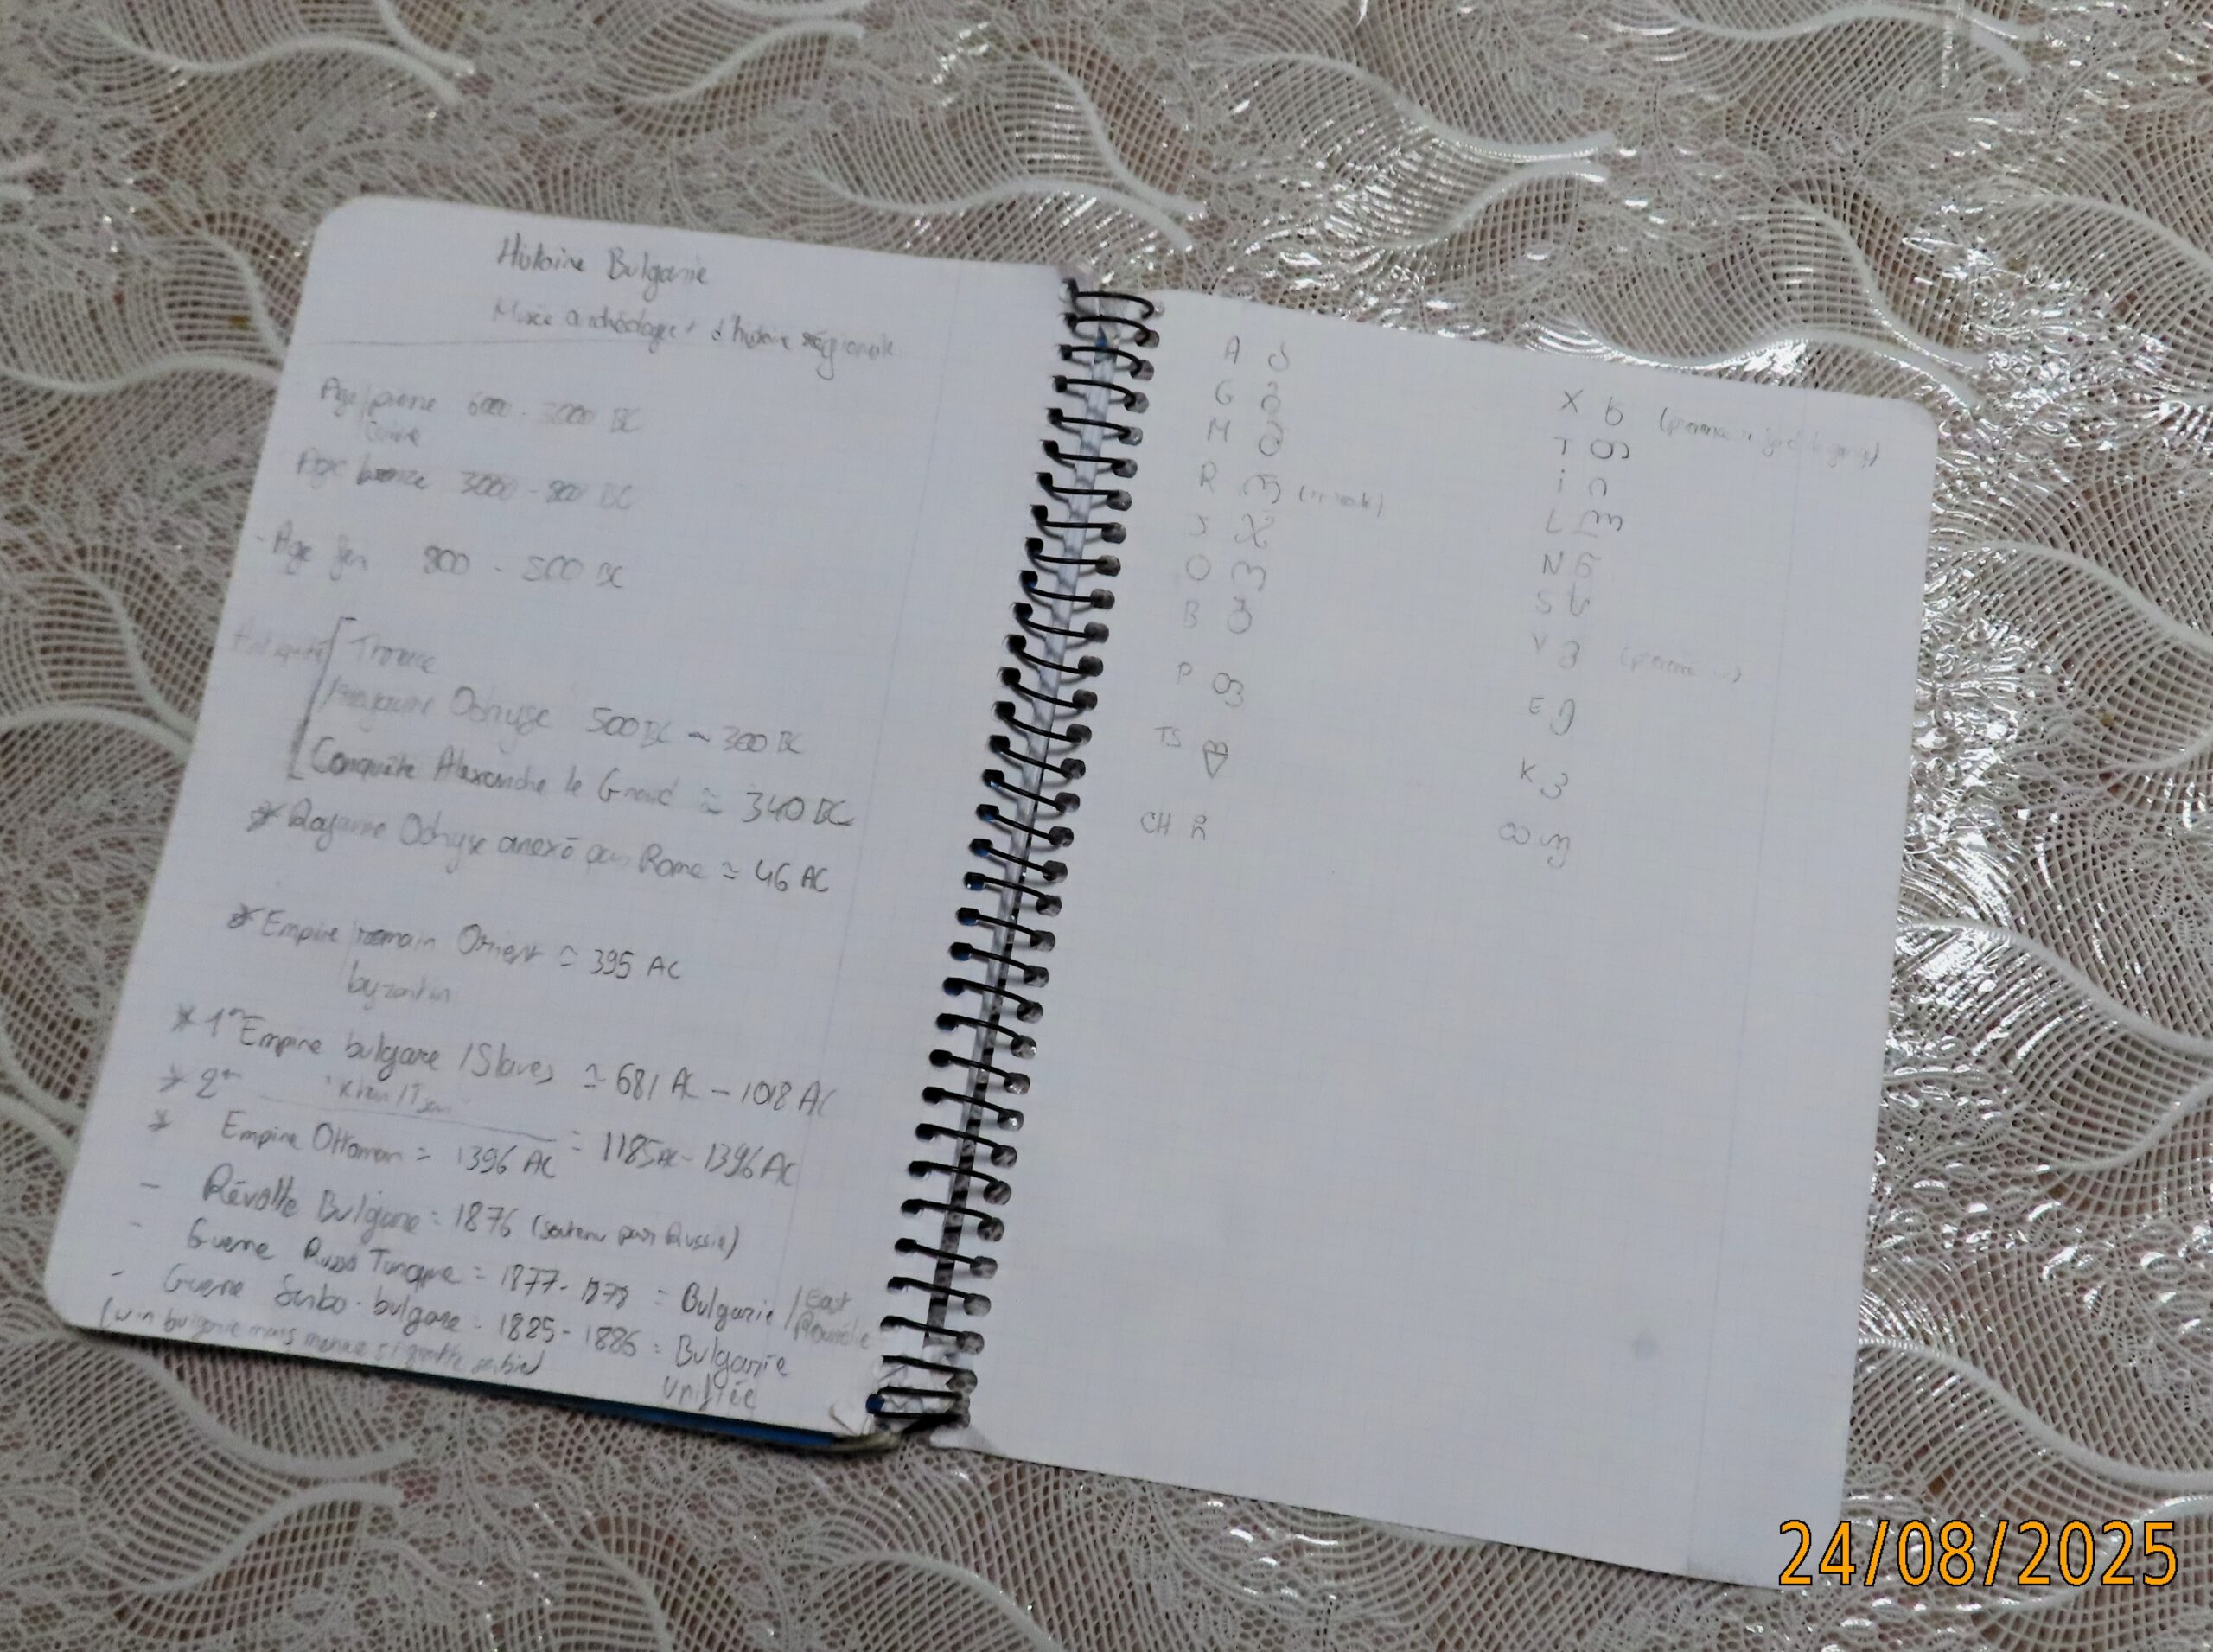 Histoire Bulgarie
Musée archéologie d'histoire régionale
Age pierre 6000 - 3000 BC
Cuivre
Age bronze 3000 - 800 BC
- Age fer 800 - 500 BC
Antiquité
Thrace
Royaume Odryse 500 BC - 300 BC
Conquête Alexandre le Grand ≃ 340 BC
* Royaume Odryse anexé par Rome ≃ 46 AC
* Empire romain Orient ≃ 395 AC
byzantin
* 1er Empire bulgare / Slaves ≃ 681 AC - 1018 AC
* 2er = 1185 AC - 1396 AC
* Empire Ottoman = 1396 AC
- Révolte Bulgarie = 1876 (soutenu par Russie)
- Guerre Russo Turque = 1877 - 1878 = Bulgarie / East
Roumélie
- Guerre Serbo-bulgare = 1885 - 1886 = Bulgarie
unifiée
(win bulgarie mais
A ა
G გ
M მ
R რ
J
O ო
B ბ
P
TS
CH რ
X ხ
T თ
i ი
L ლ
N ნ
S ს
V ვ
E ე
K კ
24/08/2025